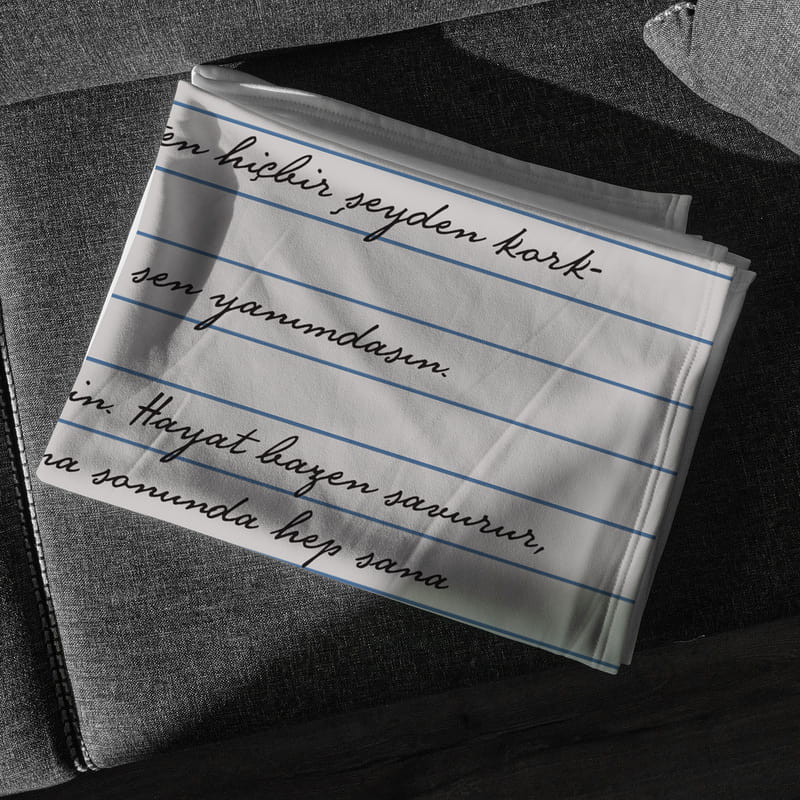 en hiçbir şeyden kork-
sen yanımdasın.
in. Hayat bazen savurur,
na sonunda hep sana